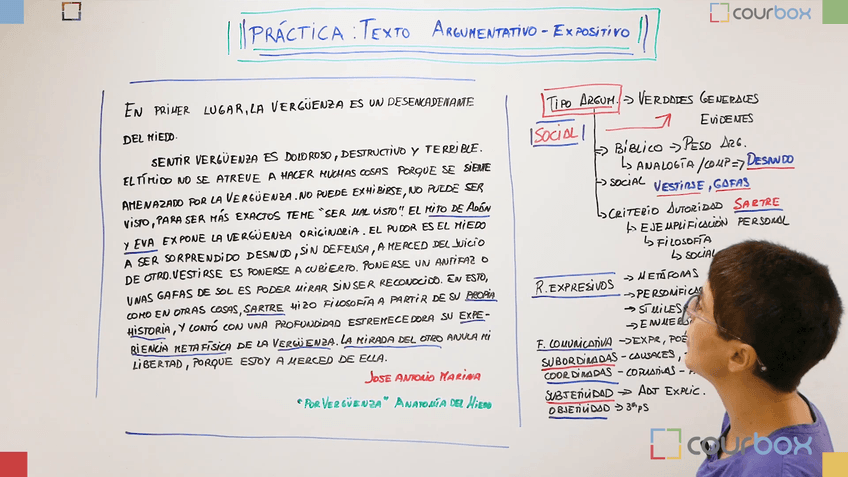 PRÁCTICA: TEXTO ARGUMENTATIVO-EXPOSITIVO
courbox
EN PRIMER LUGAR, LA VERGÜENZA ES UN DESENCADENANTE
DEL MIEDO.
SENTIR VERGÜENZA ES DOLOROSO, DESTRUCTIVO Y TERRIBLE.
EL TÍMIDO NO SE ATREVE A HACER MUCHAS COSAS PORQUE SE SIENTE
AMENAZADO POR LA VERGÜENZA. NO PUEDE EXHIBIRSE, NO PUEDE SER
VISTO, PARA SER MÁS EXACTOS TEME "SER MAL VISTO". EL MITO DE ADÁN
Y EVA EXPONE LA VERGÜENZA ORIGINARIA. EL PUDOR ES EL MIEDO
A SER SORPRENDIDO DESNUDO, SIN DEFENSA, A MERCED DEL JUICIO
DE OTRO. VESTIRSE ES PONERSE A CUBIERTO. PONERSE UN ANTIFAZ O
UNAS GAFAS DE SOL ES PODER MIRAR SIN SER RECONOCIDO. EN ESTO,
COMO EN OTRAS COSAS, SARTRE HIZO FILOSOFÍA A PARTIR DE SU PROPIA
HISTORIA, Y CONTÓ CON UNA PROFUNDIDAD ESTREMECEDORA SU EXPE-
RIENCIA METAFÍSICA DE LA VERGÜENZA. LA MIRADA DEL OTRO ANULA MI
LIBERTAD, PORQUE ESTOY A MERCED DE ELLA.
JOSE ANTONIO MARINA
"POR VERGÜENZA" ANATOMÍA DEL MIEDO
TIPO ARGUM. → VERDADES GENERALES
EVIDENTES
SOCIAL
→ BÍBLICO → PESO ARG.
↳ ANALOGÍA/COMP ⇒ DESNUDO
→ SOCIAL VESTIRSE, GAFAS
→ CRITERIO AUTORIDAD SARTRE
↳ EJEMPLIFICACIÓN PERSONAL
↳ FILOSOFÍA
↳ SOCIAL
R. EXPRESIVOS → METÁFORAS
→ PERSONIFICA
→ SÍMILES
→ ENUMER
F. COMUNICATIVA → EXPR, POÉ
SUBORDINADAS - CAUSALES,
COORDINADAS - COPULATIVAS -
SUBJETIVIDAD → ADJ EXPLIC.
OBJETIVIDAD → 3ª PS
courbox